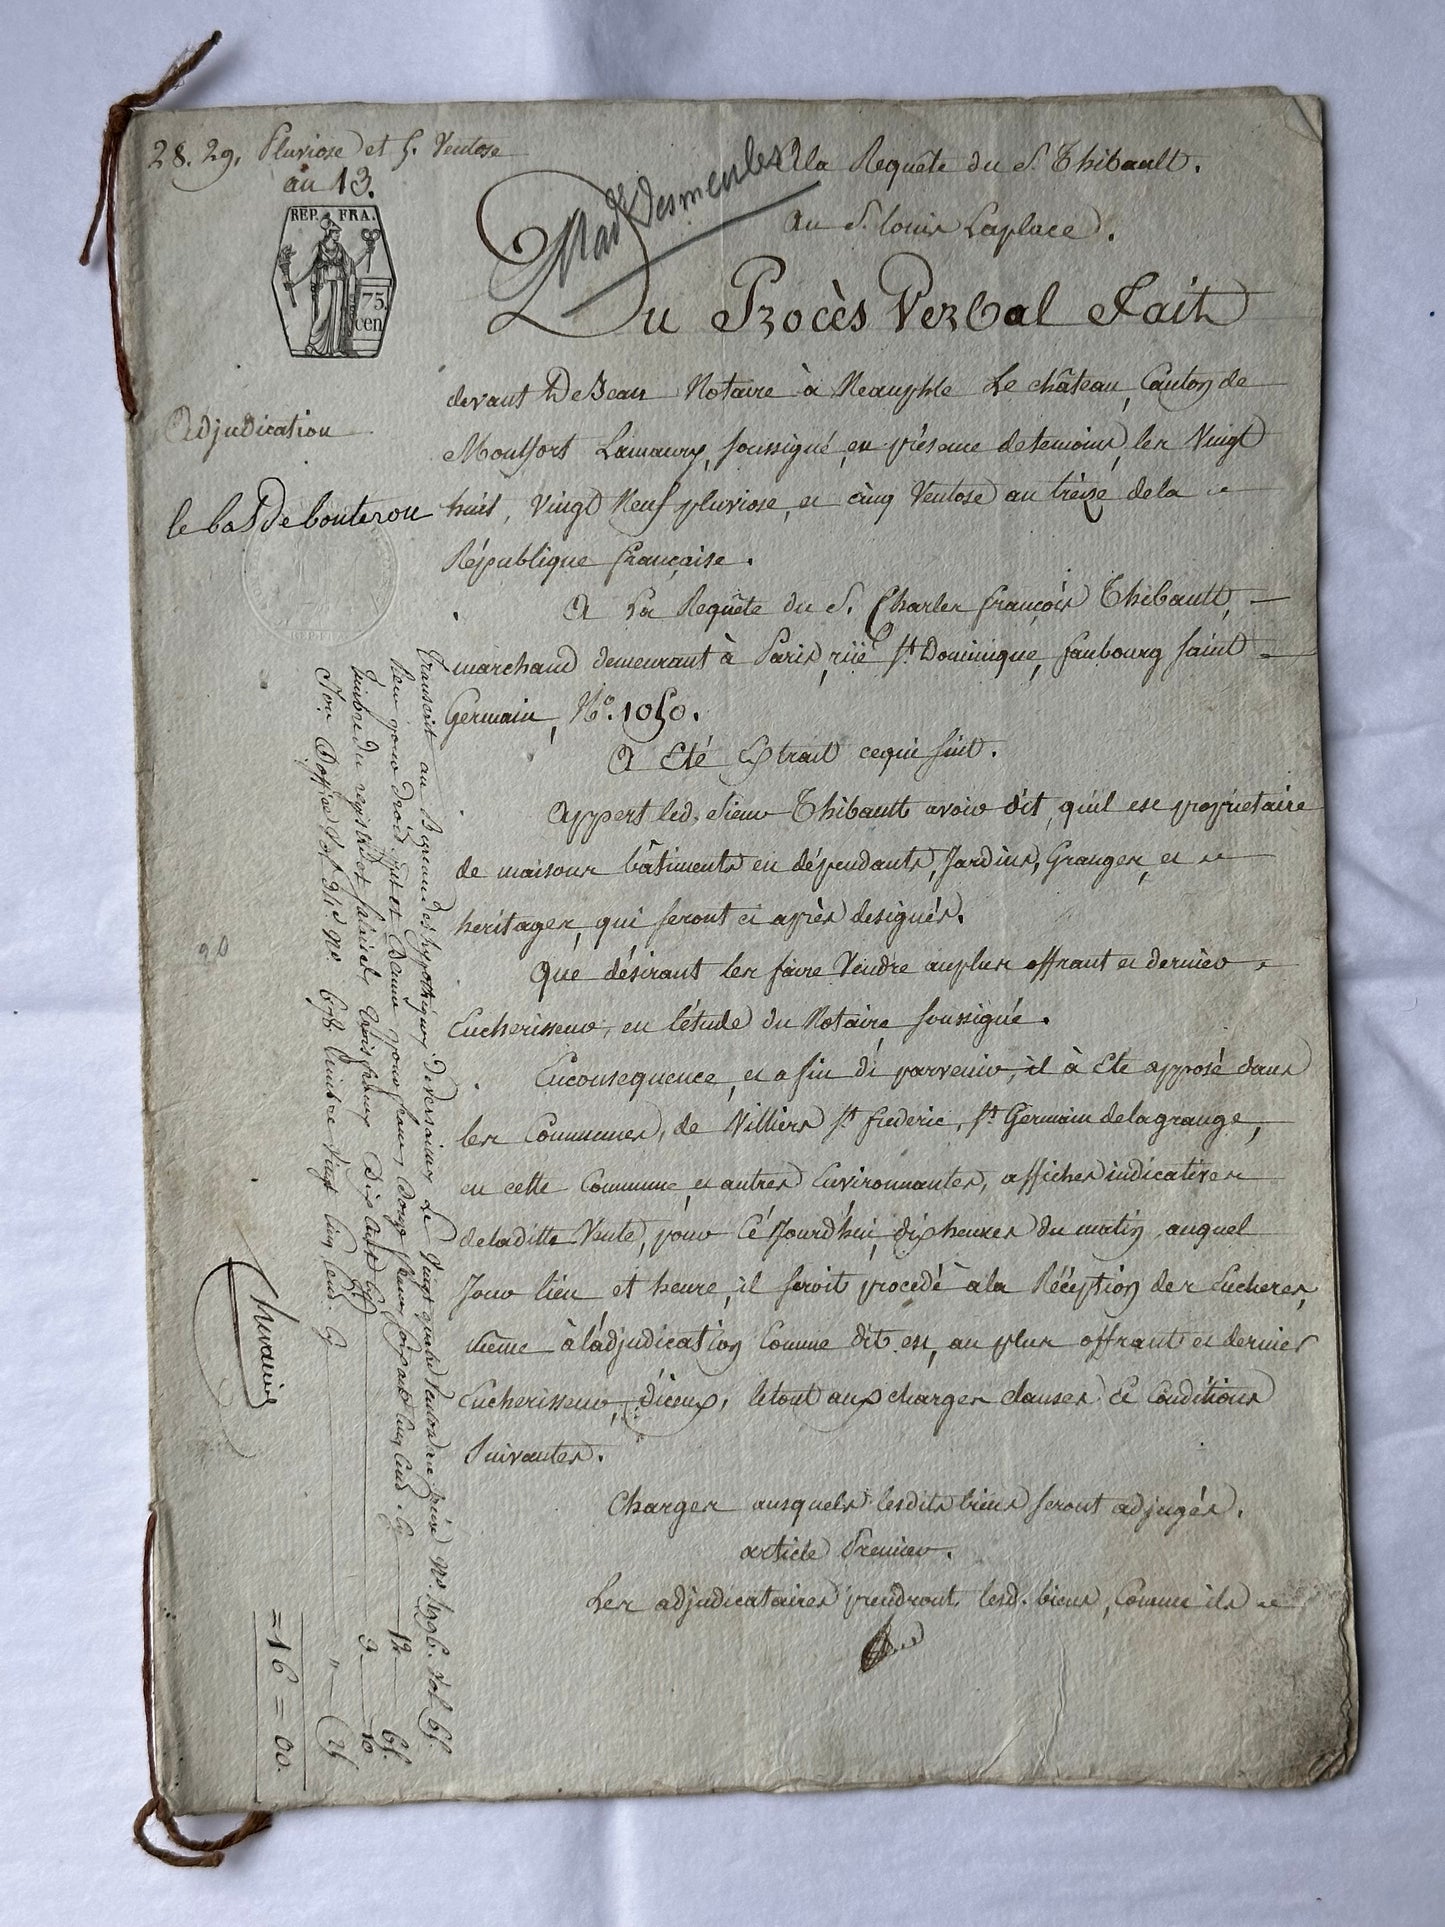 28. 29. Pluviose et 5. Ventose
an 13.
REP. FRA.
75
cen
Adjudication
le bas de bouteron
Mad.e Desmeules
A la Requête du S. Thibault.
au S. Louis Laplace.
Du Procès Verbal Fait
devant DeBeau Notaire à Neauphle Le château, Canton de
Montfort Lamaury, soussigné, en présence de temoins, les Vingt
huit, vingt Neuf pluviose, et cinq Ventose an treize de la
République française.
A La Requête du S. Charles françois Thibault,
marchand demeurant à Paris, rüe St. Dominique, faubourg Saint
Germain, N.o 1050.
A Eté Extrait cequi suit.
Appert led. Sieur Thibault avoir dit, qu'il est propriétaire
de maisons bâtiments en dépendants, Jardins, Granges, et
heritages, qui seront ci après designés.
Que désirant les faire Vendre au plus offrant et dernier
Encherisseur, en l'étude du Notaire, soussigné.
Enconsequence, et afin di parvenir, il à Eté apposé dans
les Communes, de Villiers St. frederic, St. Germain delagrange,
en cette Commune, et autres Environnantes, affiches indicatives
de laditte Vente, pour Cé Jourd'hui, dix heures du matin auquel
Jour lieu et heure, il seroit procedé à la Réception des Encheres,
même à l'adjudication Comme dit est, au plus offrant et dernier
Encherisseur, d'iceux, le tout aux charges clauses Et Conditions
Suivantes.
Charges ausquels lesdits biens seront adjugés.
article Premier.
Les adjudicataires prendront lesd. biens, Comme ils
Transcrit au Bureau des hypotheques de versailles Le Vingt quatre Ventose an treize N.o 1296. Vol 65.
Reçu pour droit fixe et Danne pour franc, Douze francs soixante cinq cent. Cy 12 65.
Timbre du registre et salaires, trois francs Dix cent. Cy 3 10
25
= 16 = 00.
20